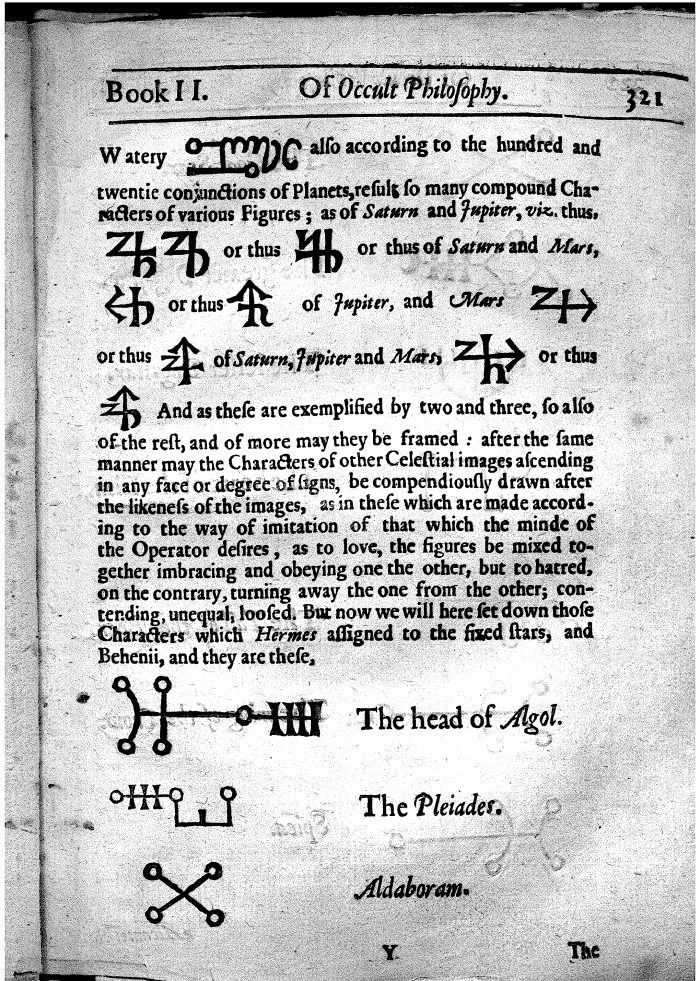 Book II. Of Occult Philoſophy. 321
Watery alſo according to the hundred and
twentie conjunctions of Planets, reſult ſo many compound Cha-
racters of various Figures; as of Saturn and Jupiter, viz. thus.
or thus or thus of Saturn and Mars,
or thus of Jupiter, and Mars
or thus of Saturn, Jupiter and Mars, or thus
And as theſe are exemplified by two and three, ſo alſo
of the reſt, and of more may they be framed: after the ſame
manner may the Characters of other Celeſtial images aſcending
in any face or degree of ſigns, be compendiouſly drawn after
the likeneſs of the images, as in theſe which are made accord-
ing to the way of imitation of that which the minde of
the Operator deſires, as to love, the figures be mixed to-
gether imbracing and obeying one the other, but to hatred,
on the contrary, turning away the one from the other; con-
tending, unequal, looſed. But now we will here ſet down thoſe
Characters which Hermes aſſigned to the fixed ſtars, and
Behenii, and they are theſe,
The head of Algol.
The Pleiades.
Aldaboram.
Y The